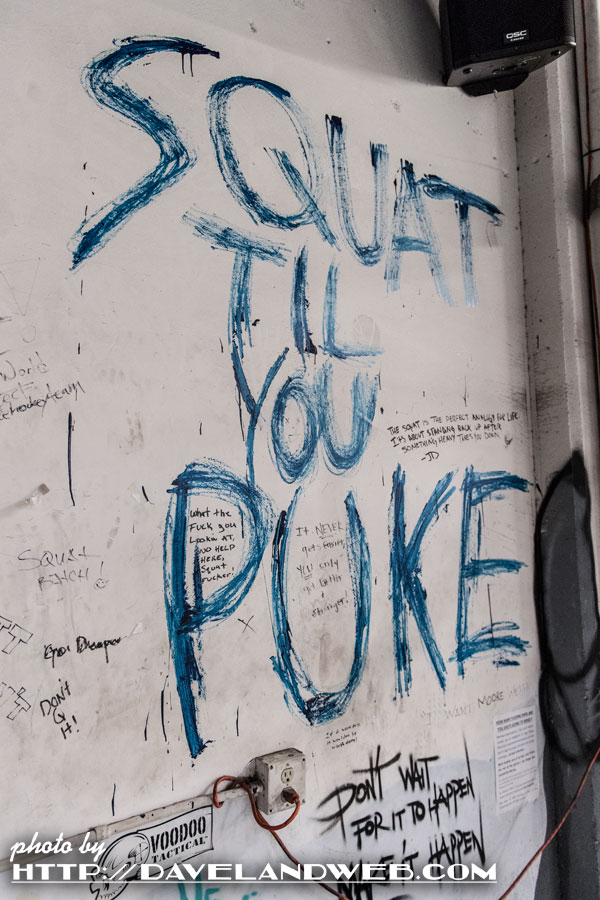 QSC
SQUAT
TIL
YOU
PUKE
World
THE SQUAT IS THE PERFECT ANALOGY FOR LIFE
IT'S ABOUT STANDING BACK UP AFTER
SOMETHING HEAVY TAKES YOU DOWN
-JD
What the
Fuck you
Lookin AT,
NO HELP
HERE,
Squat
Fucker!
It NEVER
gets easier,
YOU only
get better
stronger!
SQUAT
BITCH!
DON'T
Q
IT!
WANT MOORE
DON'T WAIT
FOR IT TO HAPPEN
MAKE IT HAPPEN
VOODOO
TACTICAL
photo by
HTTP://DAVELANDWEB.COM